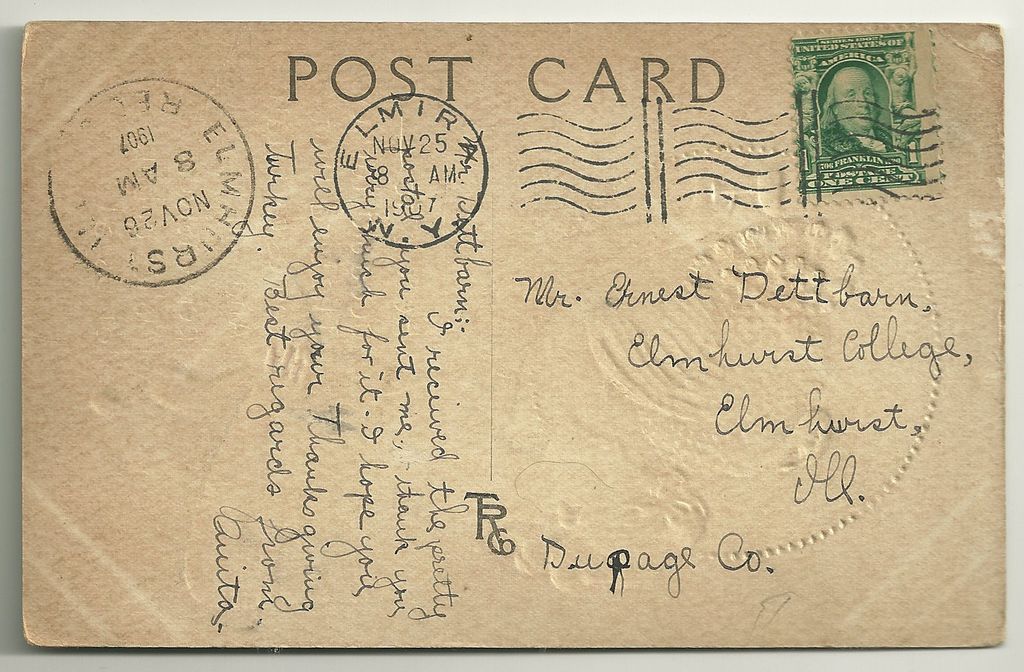 POST CARD
ELMHURST
NOV 26
8 AM
1907
ELMIRA
NOV 25
8 AM
N.Y.
SERIES 1902
UNITED STATES OF
AMERICA
FRANKLIN
POSTAGE
1 1
ONE CENT
Mr. Dettbarn:- I received the pretty
postal you sent me, - thank you
very much for it. I hope you
will enjoy your Thanksgiving
turkey. Best regards from
Anita.
Mr. Ernest Dettbarn,
Elmhurst College,
Elmhurst,
Ill.
Dupage Co.